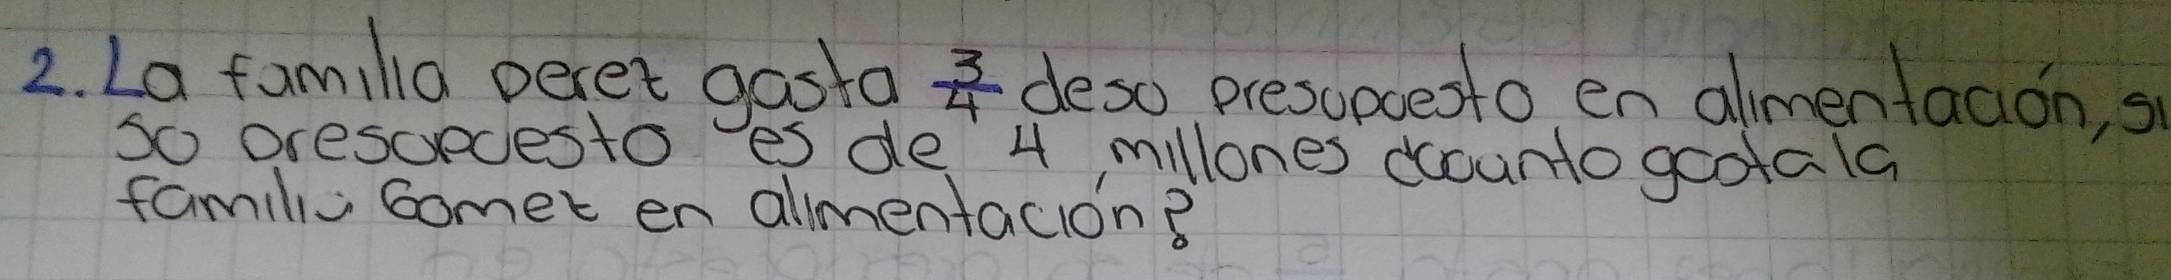 2. La familia perez gasta 3/4 de so presopoesto en alimentación, si
so presopoesto es de 4 millones ¿cuanto gasta la
familia Gomez en alimentación?